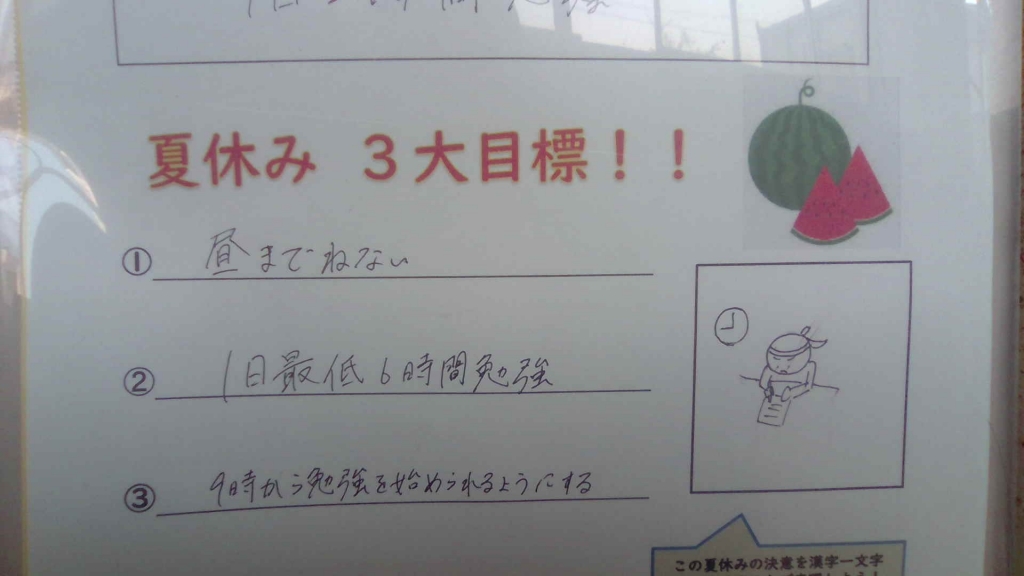 夏休み 3大目標！！
① 昼までねない
② 1日最低6時間勉強
③ 9時から勉強を始められるようにする
この夏休みの決意を漢字一文字